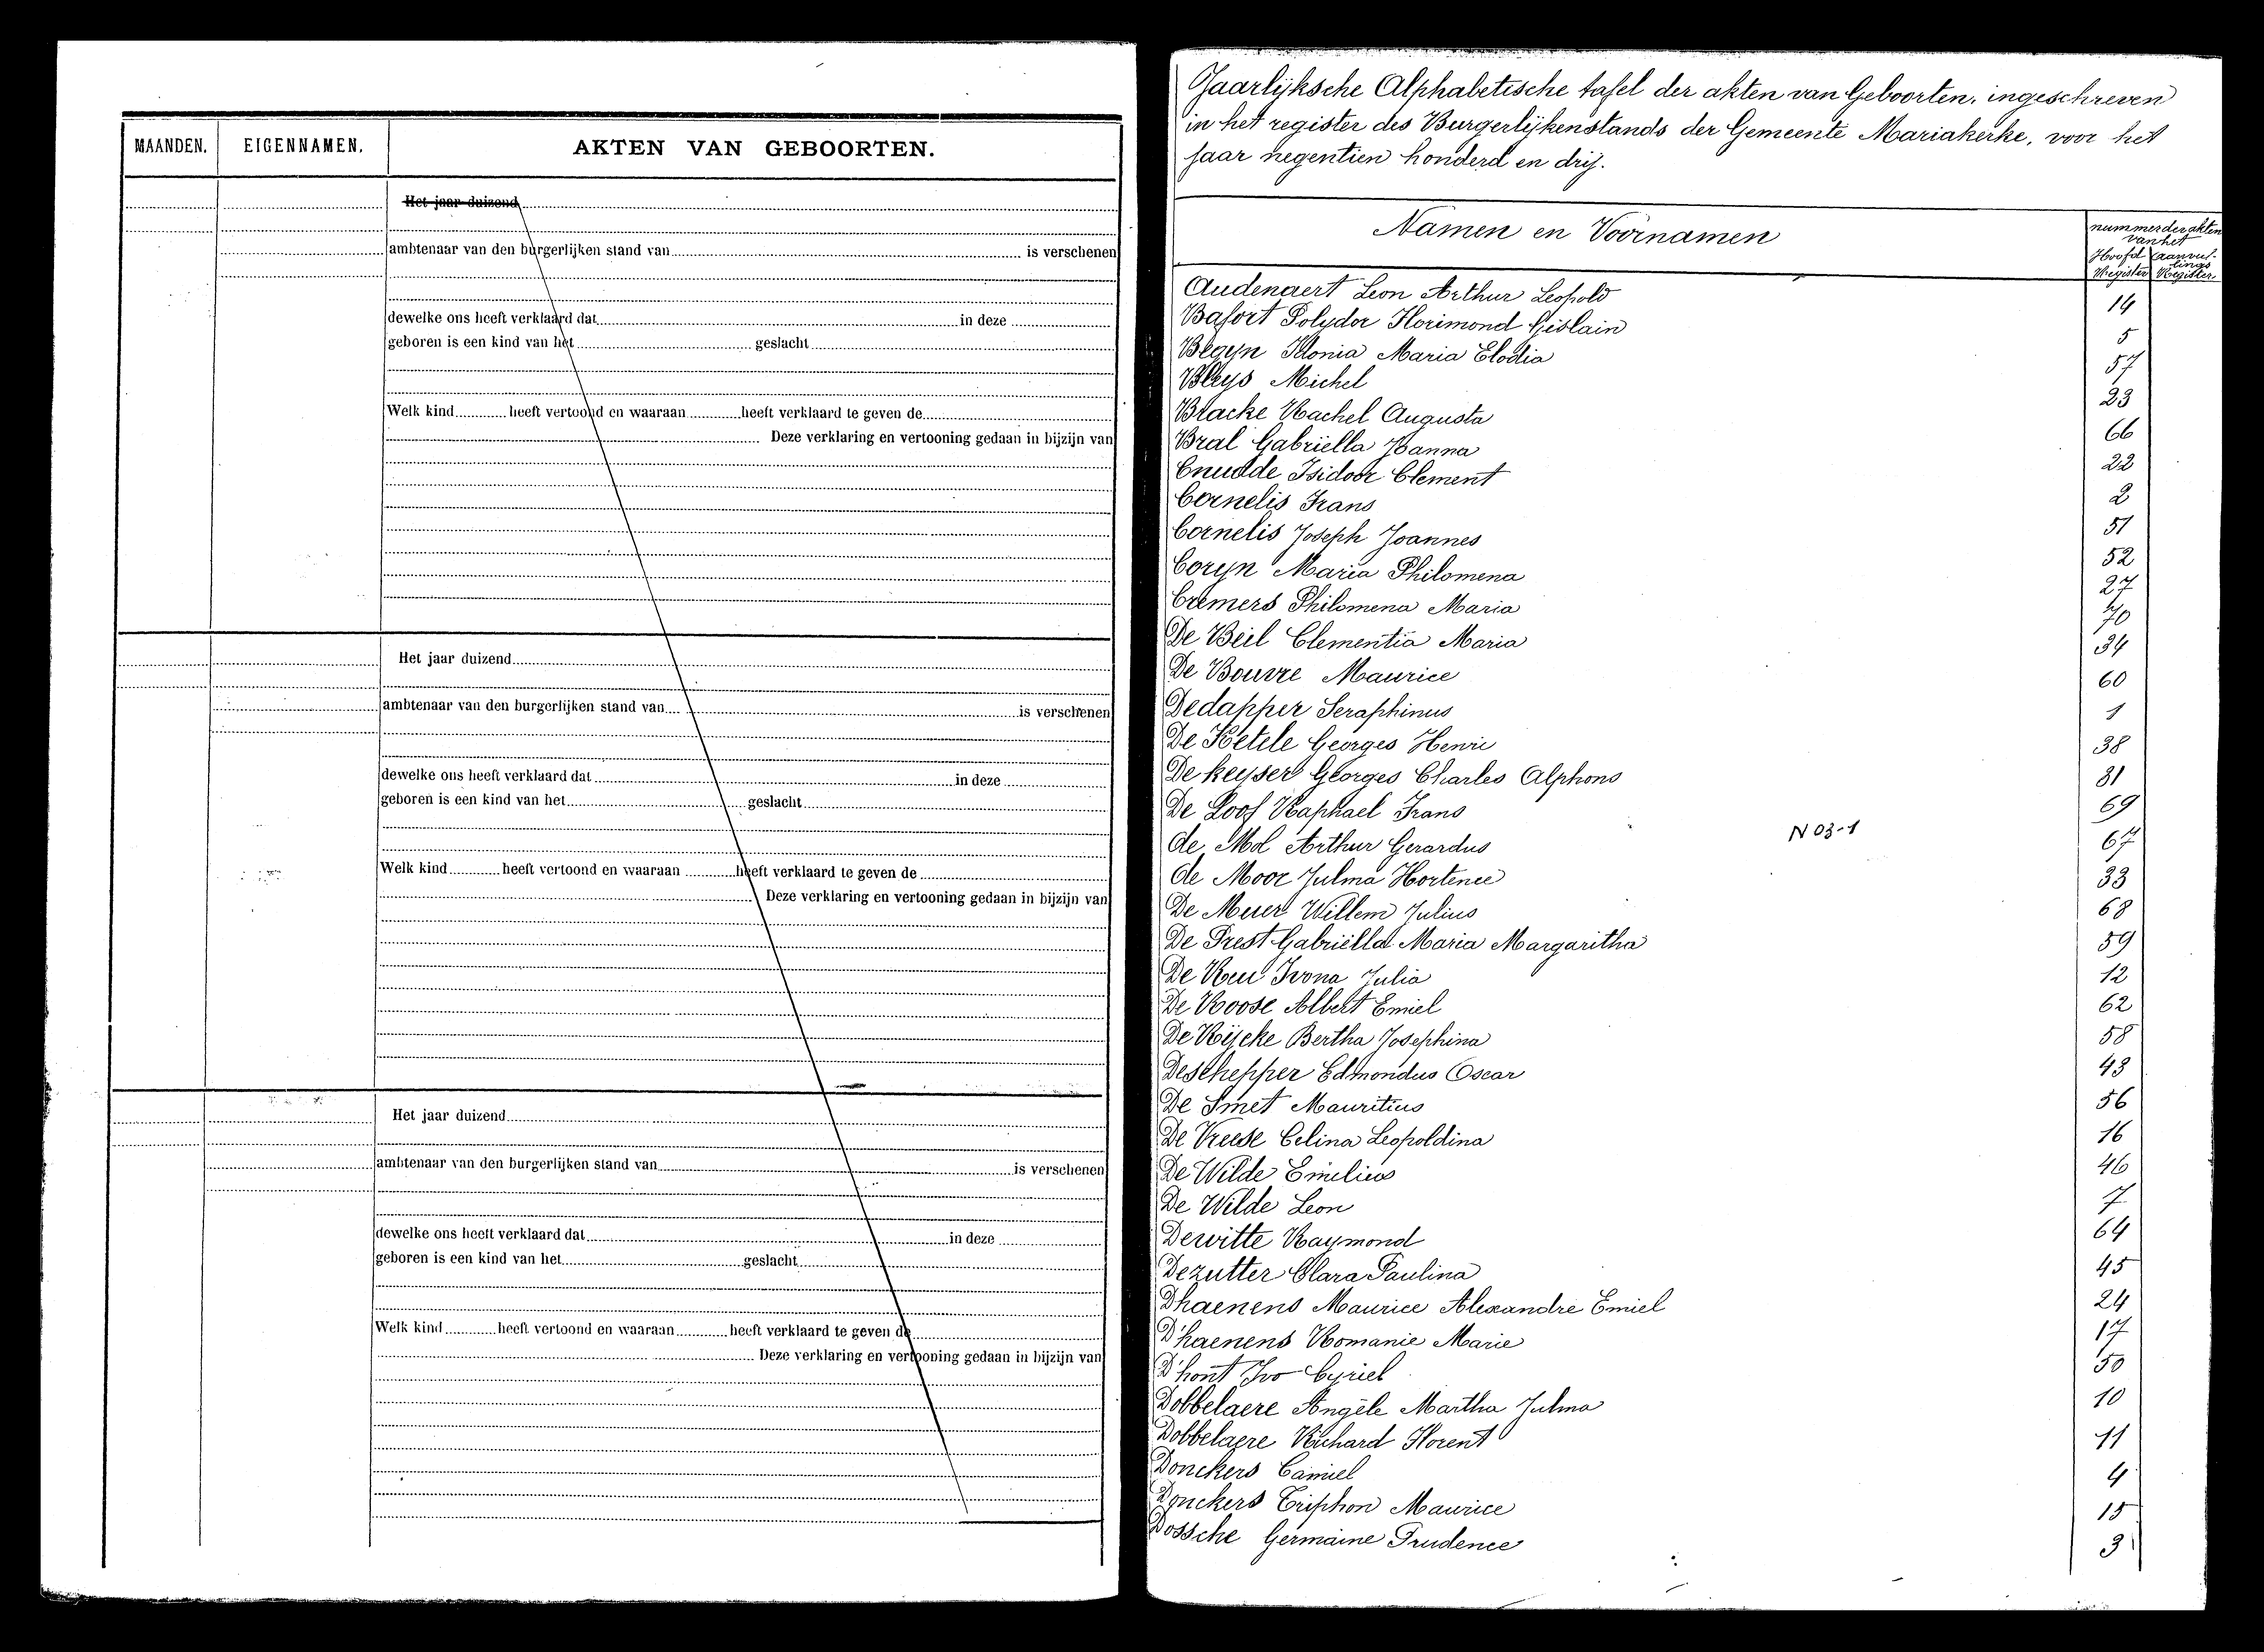 MAANDEN. EIGENNAMEN. AKTEN VAN GEBOORTEN.
Het jaar duizend
ambtenaar van den burgerlijken stand van is verschenen
dewelke ons heeft verklaard dat in deze
geboren is een kind van het geslacht
Welk kind heeft vertoond en waaraan heeft verklaard te geven de
Deze verklaring en vertooning gedaan in bijzijn van
Het jaar duizend
ambtenaar van den burgerlijken stand van is verschenen
dewelke ons heeft verklaard dat in deze
geboren is een kind van het geslacht
Welk kind heeft vertoond en waaraan heeft verklaard te geven de
Deze verklaring en vertooning gedaan in bijzijn van
Het jaar duizend
ambtenaar van den burgerlijken stand van is verschenen
dewelke ons heeft verklaard dat in deze
geboren is een kind van het geslacht
Welk kind heeft vertoond en waaraan heeft verklaard te geven de
Deze verklaring en vertooning gedaan in bijzijn van
Jaarlijksche Alphabetische tafel der akten van Geboorten, ingeschreven
in het register des Burgerlijkenstands der Gemeente Mariakerke, voor het
jaar negentien honderd en drij.
Namen en Voornamen
nummer der akten
van het
Hoofd Register
aanvullings Register
Audenaert Leon Arthur Leopold 14
Bafort Polydor Florimond Gislain 5
Begyn Idonia Maria Elodia 57
Bleys Michel 23
Bracke Rachel Augusta 66
Bral Gabriella Joanna 22
Cnudde Isidoor Clement 2
Cornelis Frans 51
Cornelis Joseph Joannes 52
Coryn Maria Philomena 27
Cremers Philomena Maria 70
De Beil Clementia Maria 34
De Bouvre Maurice 60
Dedapper Seraphinus 1
De Ketele Georges Henri 38
De keyser Georges Charles Alphons 31
De Loof Raphael Frans 69
de Mol Arthur Gerardus 67
N 03-1
de Moor Julma Hortence 33
De Muer Willem Julius 68
De Prest Gabriëlla Maria Margaritha 59
De Reu Ivona Julia 12
De Roose Albert Emiel 62
De Rijcke Bertha Josephina 58
Deschepper Edmondus Oscar 43
De Smet Mauritius 56
De Vreese Celina Leopoldina 16
De Wilde Emilius 46
De Wilde Leon 7
Dewitte Raymond 64
Dezutter Clara Paulina 45
Dhaenens Maurice Alexandre Emiel 24
D'haenens Romanie Marie 17
D'hont Ivo Cyriel 50
Dobbelaere Angèle Martha Julma 10
Dobbelaere Richard Florent 11
Donckers Camiel 4
Donckers Triphon Maurice 15
Dossche Germaine Prudence 3